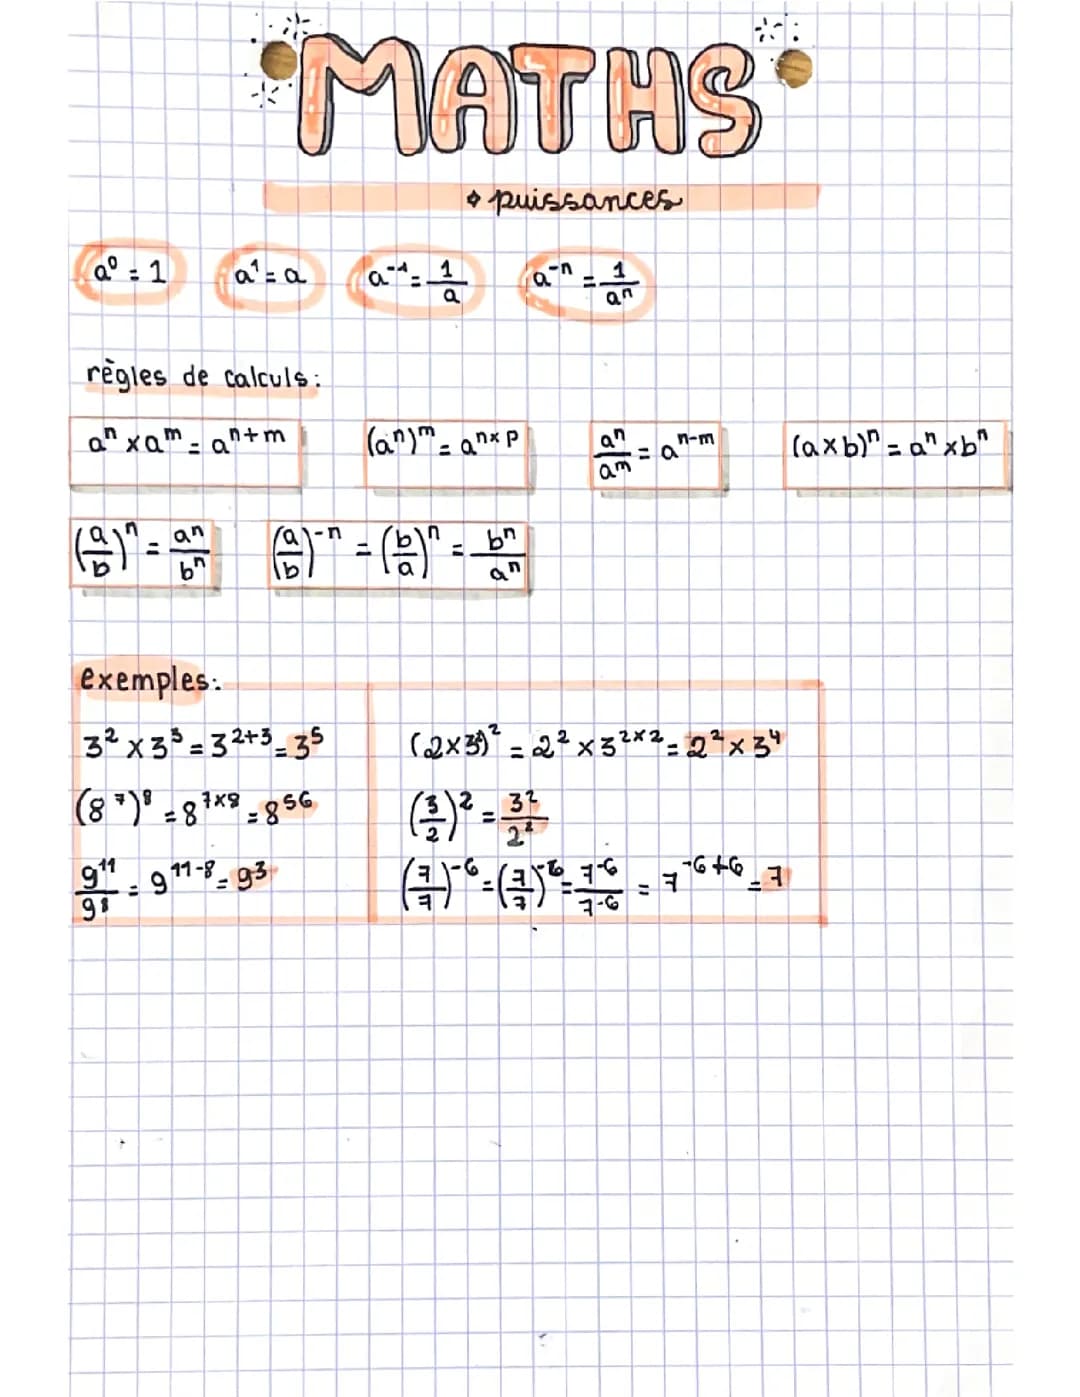 MATHS
puissances
a⁰ = 1  a¹ = a  a⁻¹ = 1/a  a⁻ⁿ = 1/aⁿ
règles de calculs :
aⁿ × aᵐ = aⁿ⁺ᵐ  (aⁿ)ᵐ = aⁿˣᵖ  aⁿ/aᵐ = aⁿ⁻ᵐ  (a×b)ⁿ = aⁿ × bⁿ
(a/b)ⁿ = aⁿ/bⁿ  (a/b)⁻ⁿ = (b/a)ⁿ = bⁿ/aⁿ
exemples :
3² × 3³ = 3²⁺³ = 3⁵
(8⁷)⁸ = 8⁷ˣ⁸ = 8⁵⁶
9¹¹/9⁸ = 9¹¹⁻⁸ = 9³
(2×3²)² = 2² × 3²ˣ² = 2² × 3⁴
(3/2)² = 3²/2²
(7/7)⁻⁶ = (7/7)⁻⁶ = 7⁻⁶/7⁻⁶ = 7⁻⁶⁺⁶ = 7